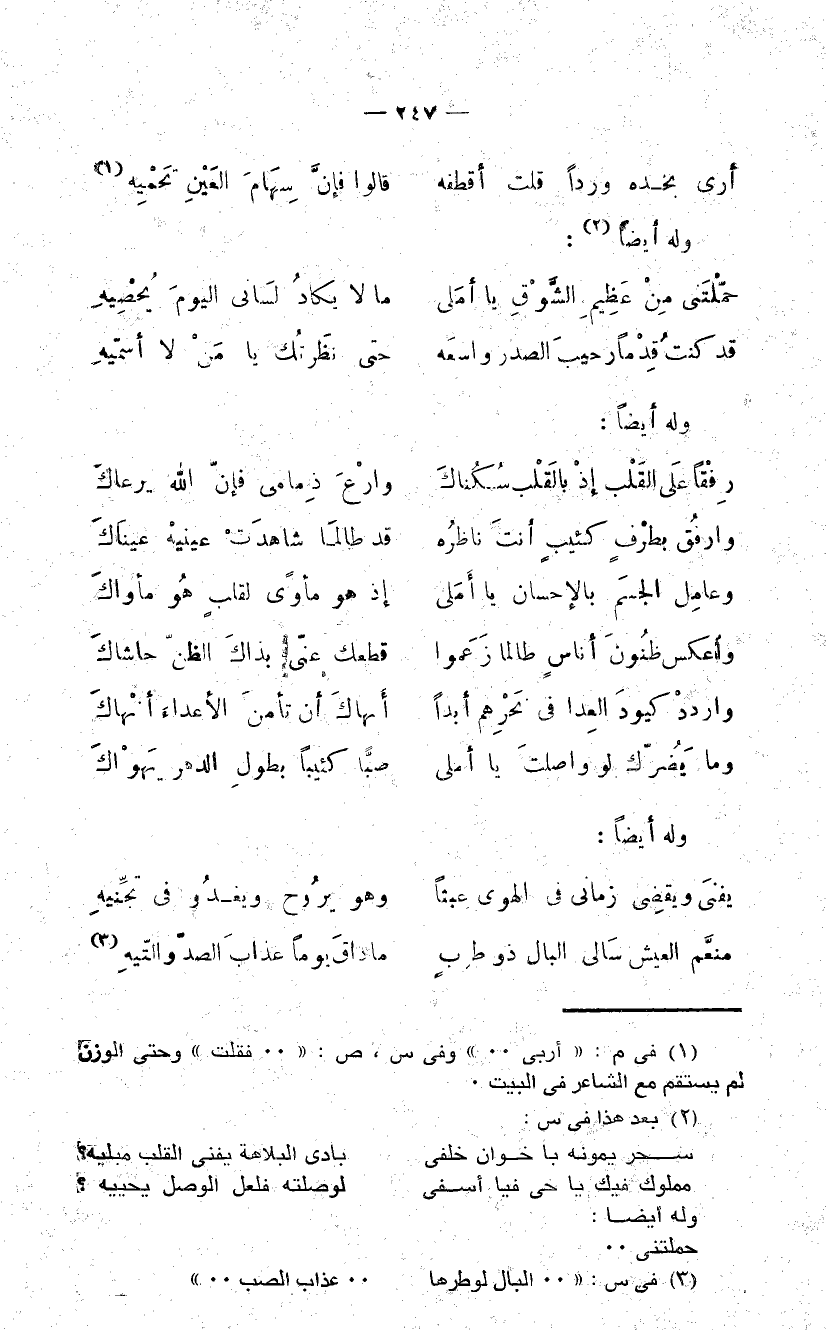 — ٢٤٧ —
أرى بخـده ورداً قلت أقطفه قالوا فإنَّ سِهَامَ العَيْنِ تَحَمْيِه (١)
وله أيضاً (٢) :
حمَّلْتَنى مِنْ عَظِيمِ الشَّوْقِ يا أمَلى ما لا يكادُ لسَانى اليومَ يُحْصِيهِ
قد كنتُ قِدْماً رحيبَ الصدر واسعَه حتى نظَرتُك يا مَنْ لا أسمّيهِ
وله أيضاً :
رِفْقاً عَلَى القَلْب إذْ بالقَلْب سُكْناكَ وارْعَ ذِمامى فإنّ الله يرعاكَ
وارفُق بطرْفٍ كئيبٍ أنتَ ناظرُه قد طالمَا شاهدَتْ عينيهْ عيناكَ
وعامِل الجسَم بالإحسان يا أمَلى إذ هو مأوًى لقلبٍ هُو مأواكَ
وأعكس ظنُونَ أناسٍ طالما زَعَموا قطعك عنّى بذاكَ الظنّ حاشاكَ
وارددْ كيودَ العِدا فى نَحْرِهم أبداً أنهاكَ أن تأمنَ الأعداء أنْهاكَ
وما يَضُرّك لو واصلتَ يا أملى صبًّا كئيباً بطولِ الدهر يَهوْاكَ
وله أيضاً :
يفنَى ويقضِى زمانى فى الهوى عبثاً وهو يرُوح ويغـدُو فى تجنِّيهِ
منعَّم العيش سَالى البال ذو طرِبٍ ماذاقَ يوماً عذابَ الصدّ والتّيهِ (٣)
(١) فى م : « أربى ٠٠ » وفى س ، ص : « ٠٠ فقلت » وحتى الوزن
لم يستقم مع الشاعر فى البيت ٠
(٢) بعد هذا فى س :
ســحر يمونه با خـوان خلفى بادى البلاهة يفنى القلب مبليه؟
مملوك فيك يا حى فيا أسـفى لوصلته فلعل الوصل يحييه ؟
وله أيضـا :
حملتنى ٠٠
(٣) فى س : « ٠٠ البال لوطرها ٠٠ عذاب الصب ٠٠ »